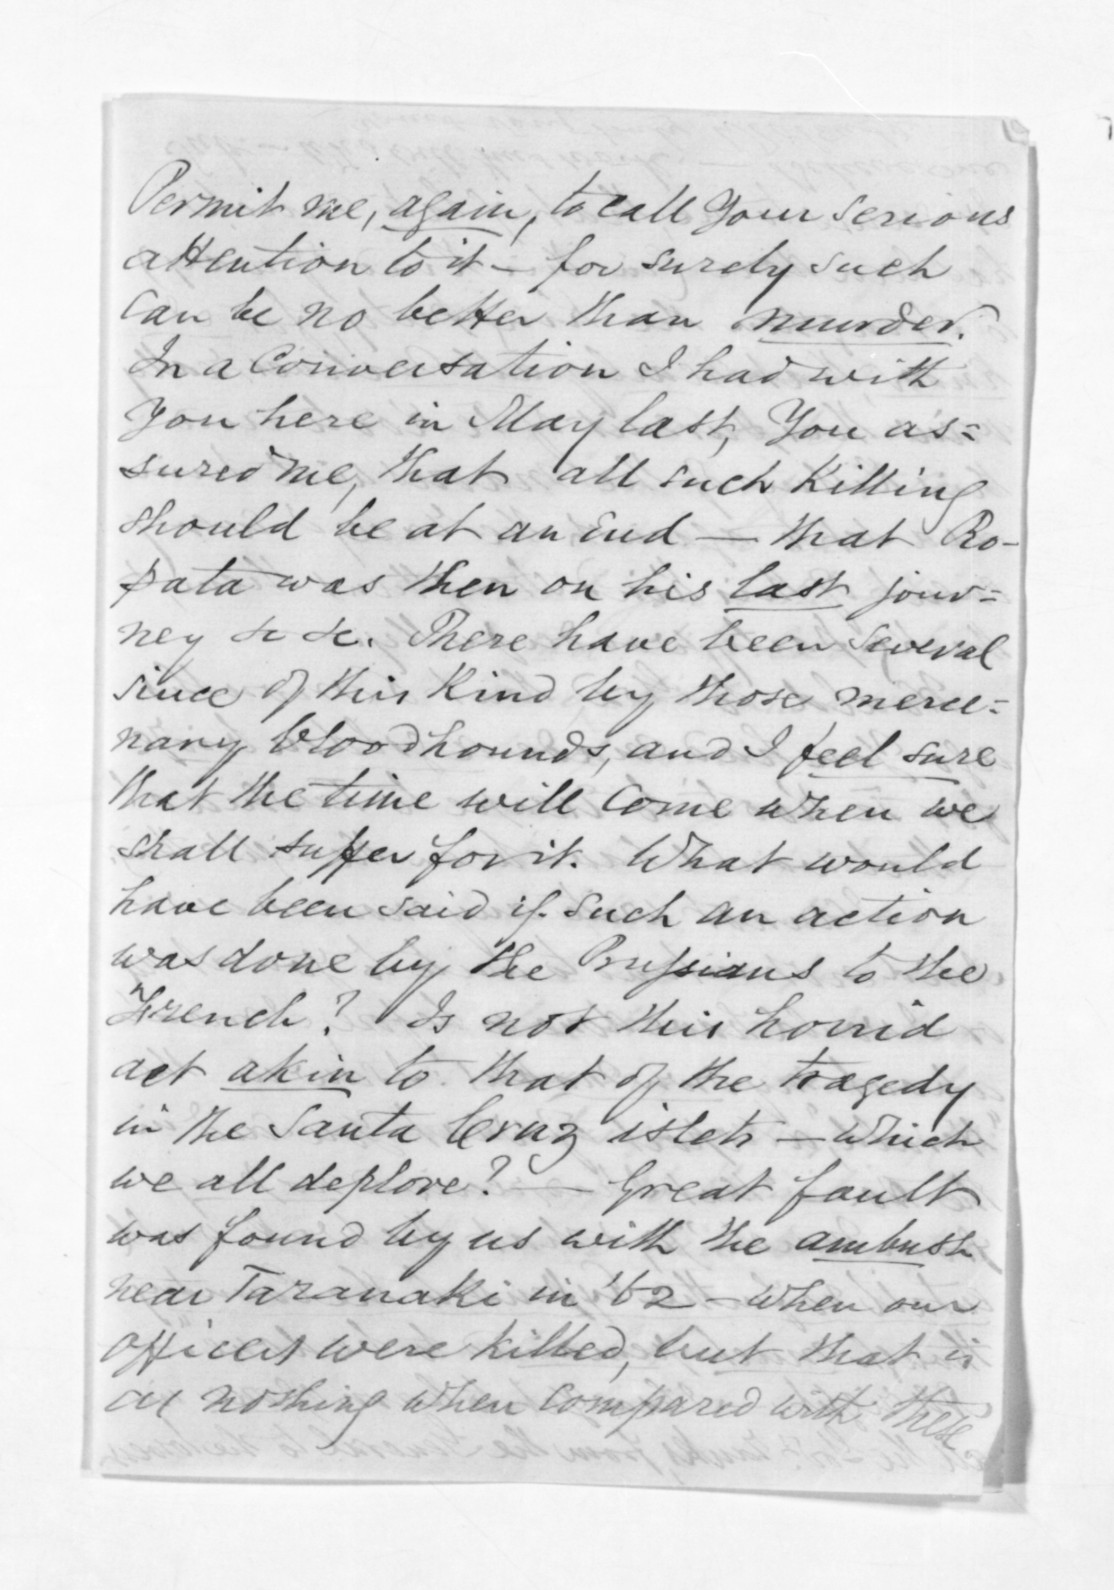 Permit me, again, to call Your serious
attention to it – for surely such
can be no better than murder.
In a Conversation I had with
You here in May last, You as=
sured me, that all such Killing
should be at an End — that Ro-
pata was then on his last jour=
ney &c &c. There have been several
since of this Kind by those merce=
nary bloodhounds, and I feel sure
that the time will come when we
shall suffer for it. What would
have been said if such an action
was done by the Prussians to the
French? Is not this horrid
act akin to that of the tragedy
in the Santa Cruz islets – which
we all deplore? — Great fault
was found by us with the ambush
near Taranaki in '62 – when our
officers were killed, but that is
as nothing when compared with these